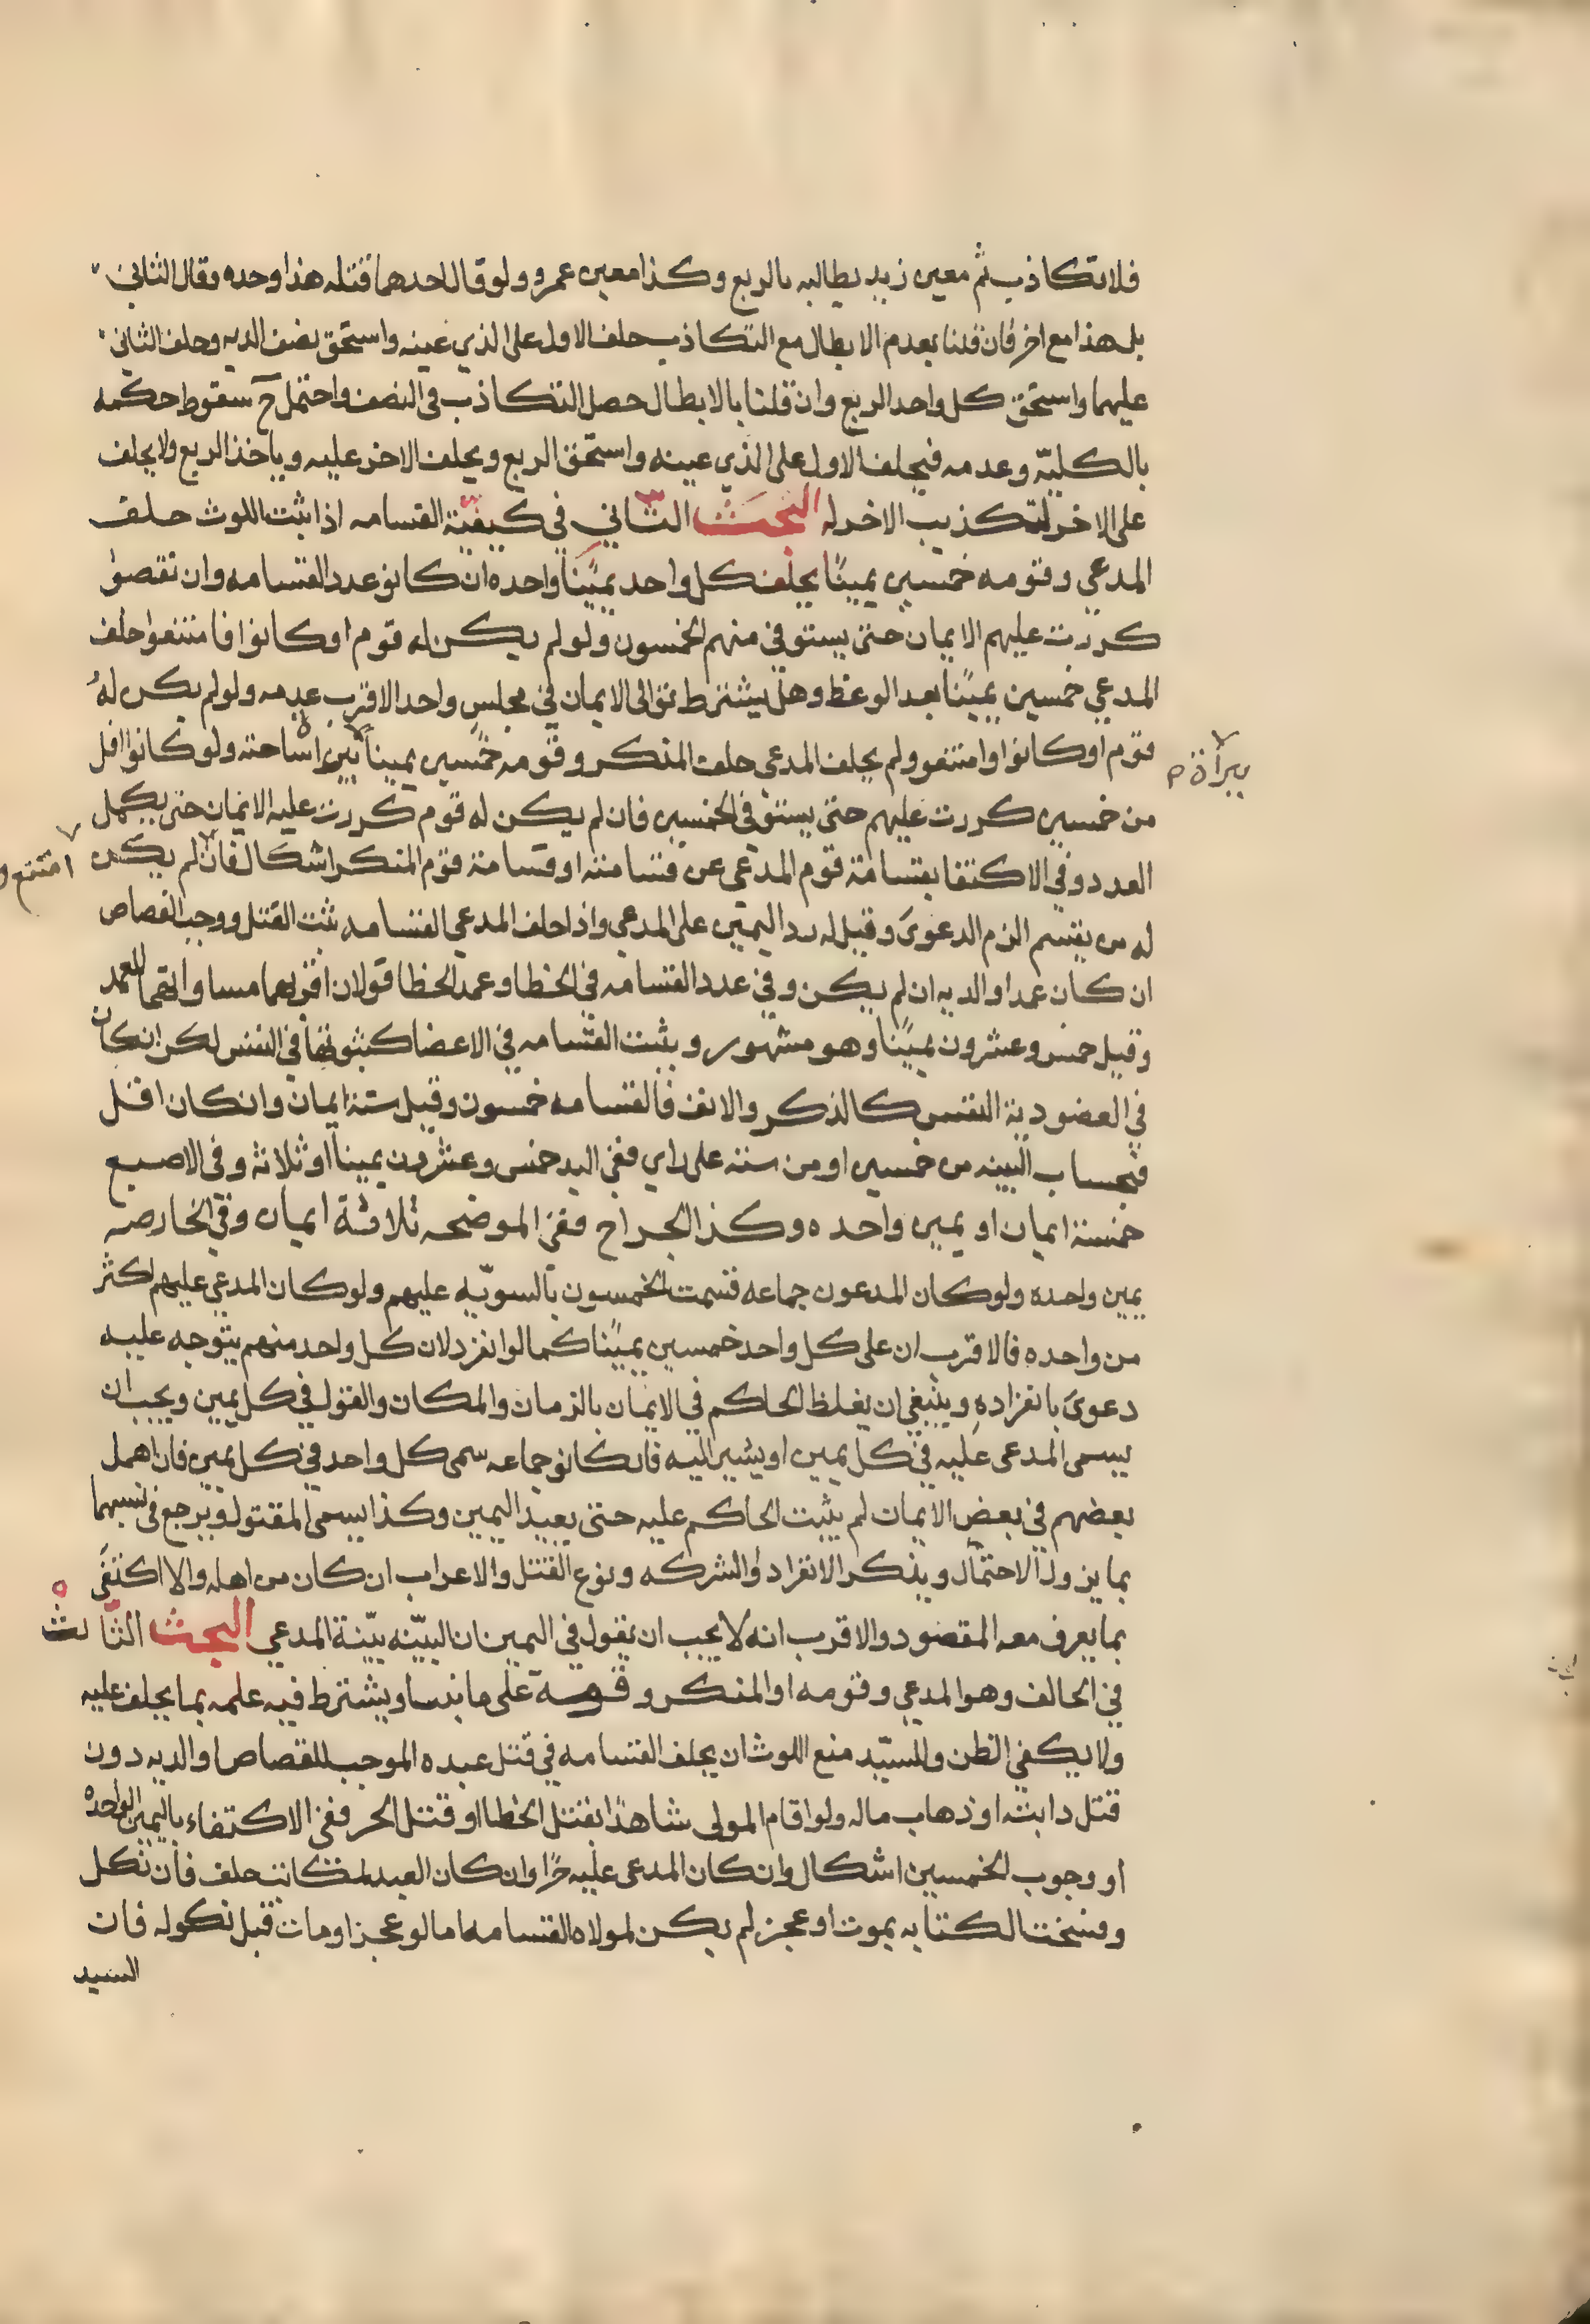 فلا تكاذب ثم معين زيد يطالبه بالربع وكذا معين عمرو ولو قال احدهما قتله هذا وحده وقال الثاني
بل هذا مع اخر فان قلنا بعدم الابطال مع التكاذب حلف الاول على الذي عينه واستحق نصف الديه وحلف الثاني
عليهما واستحق كل واحد الربع وان قلنا بالابطال حصل التكاذب في النصف واحتمل ح سقوط حكمه
بالكليّه وعدمه فيحلف الاول على الذي عينه واستحق الربع ويحلف الاخر عليه وياخذ الربع ولا يحلف
على الاخر لتكذيب الاخر له البحث الثاني في كيفيّة القسامه اذا ثبت اللوث حلف
المدعي وقومه خمسين يمينًا يحلف كل واحد يمينًا واحده ان كانو عدد القسامه وان نقصوا
كررت عليهم الايمان حتى يستوفي منهم الخمسون ولو لم يكن له قوم او كانوا فامتنعوا حلف
المدعي خمسين يمينًا بعد الوعظ وهل يشترط توالى الايمان في مجلس واحد الاقرب عدمه ولو لم يكن له
قوم او كانوا وامتنعو ولم يحلف المدعي حلف المنكر وقومه خمسين يمينًا ساحته ولو كانوا اقل
يبرأة م
من خمسين كررت عليهم حتى يستوفي الخمسين فان لم يكن له قوم كررت عليه الايمان حتى يكمل
العدد وفي الاكتفا بقسامة قوم المدعي عن قسامته او قسامة قوم المنكر اشكال فان لم يكن
امتنع و
له من يقسم الزم الدعوى وقيل له رد اليمين على المدعي واذا حلف المدعي القسامه ثبت القتل ووجب القصاص
ان كان عمدا والديه ان لم يكن وفي عدد القسامه في الخطا وعمد الخطا قولان اقربهما مساواتهما للعمد
وقيل خمس وعشرون يمينًا وهو مشهور ويثبت القسامه في الاعضا كثبوتها في النفس لكن ان كان
في العضو دية النفس كالذكر والانف فالقسامه خمسون وقيل ستة ايمان وان كان اقل
فبحساب البينه من خمسين او من سته على راي ففي اليد خمس وعشرون يمينا او ثلاثة وفي الاصبع
خمسة ايمان او يمين واحده وكذا الجراح ففي الموضحه ثلاثة ايمان وفي الخارصه
يمين واحده ولو كان المدعون جماعه قسمت الخمسون بالسويّه عليهم ولو كان المدعي عليهم اكثر
من واحده فالاقرب ان على كل واحد خمسين يمينًا كما لو انفرد لان كل واحد منهم يتوجه عليه
دعوى بانفراده وينبغي ان يغلظ الحاكم في الايمان بالزمان والمكان والقول في كل يمين ويجب ان
يسمى المدعى عليه في كل يمين او يشير اليه فان كانو جماعه سمى كل واحد في كل يمين فان اهمل
بعضهم في بعض الايمان لم يثبت الحاكم عليه حتى يعيد اليمين وكذا يسمى المقتول ويرجع في نسبهما
بما يزول الاحتمال ويذكر الانفراد والشركه ونوع القتل والاعراب ان كان من اهله والا اكتفى
بما يعرف معه المقصود والاقرب انه لا يجب ان يقول في اليمين ان البيّنه بيّنة المدعي البحث الثالث
في الحالف وهو المدعي وقومه او المنكر وقومه على ما بدا ويشترط فيه علمه بما يحلف عليه
ولا يكفي الظن وللسيّد منع اللوث ان يحلف القسامه في قتل عبده الموجب للقصاص او الديه دون
قتل دابته او ذهاب ماله ولو اقام المولى شاهدًا بقتل الخطا او قتل الحر ففي الاكتفاء باليمين الواحده
او وجوب الخمسين اشكال وان كان المدعى عليه حرًا وان كان العبد لمكاتب حلف فان نكل
وفسخت الكتابه بموت او عجز لم يكن لمولاه القسامه اما لو عجز او مات قبل نكوله فان
السيد